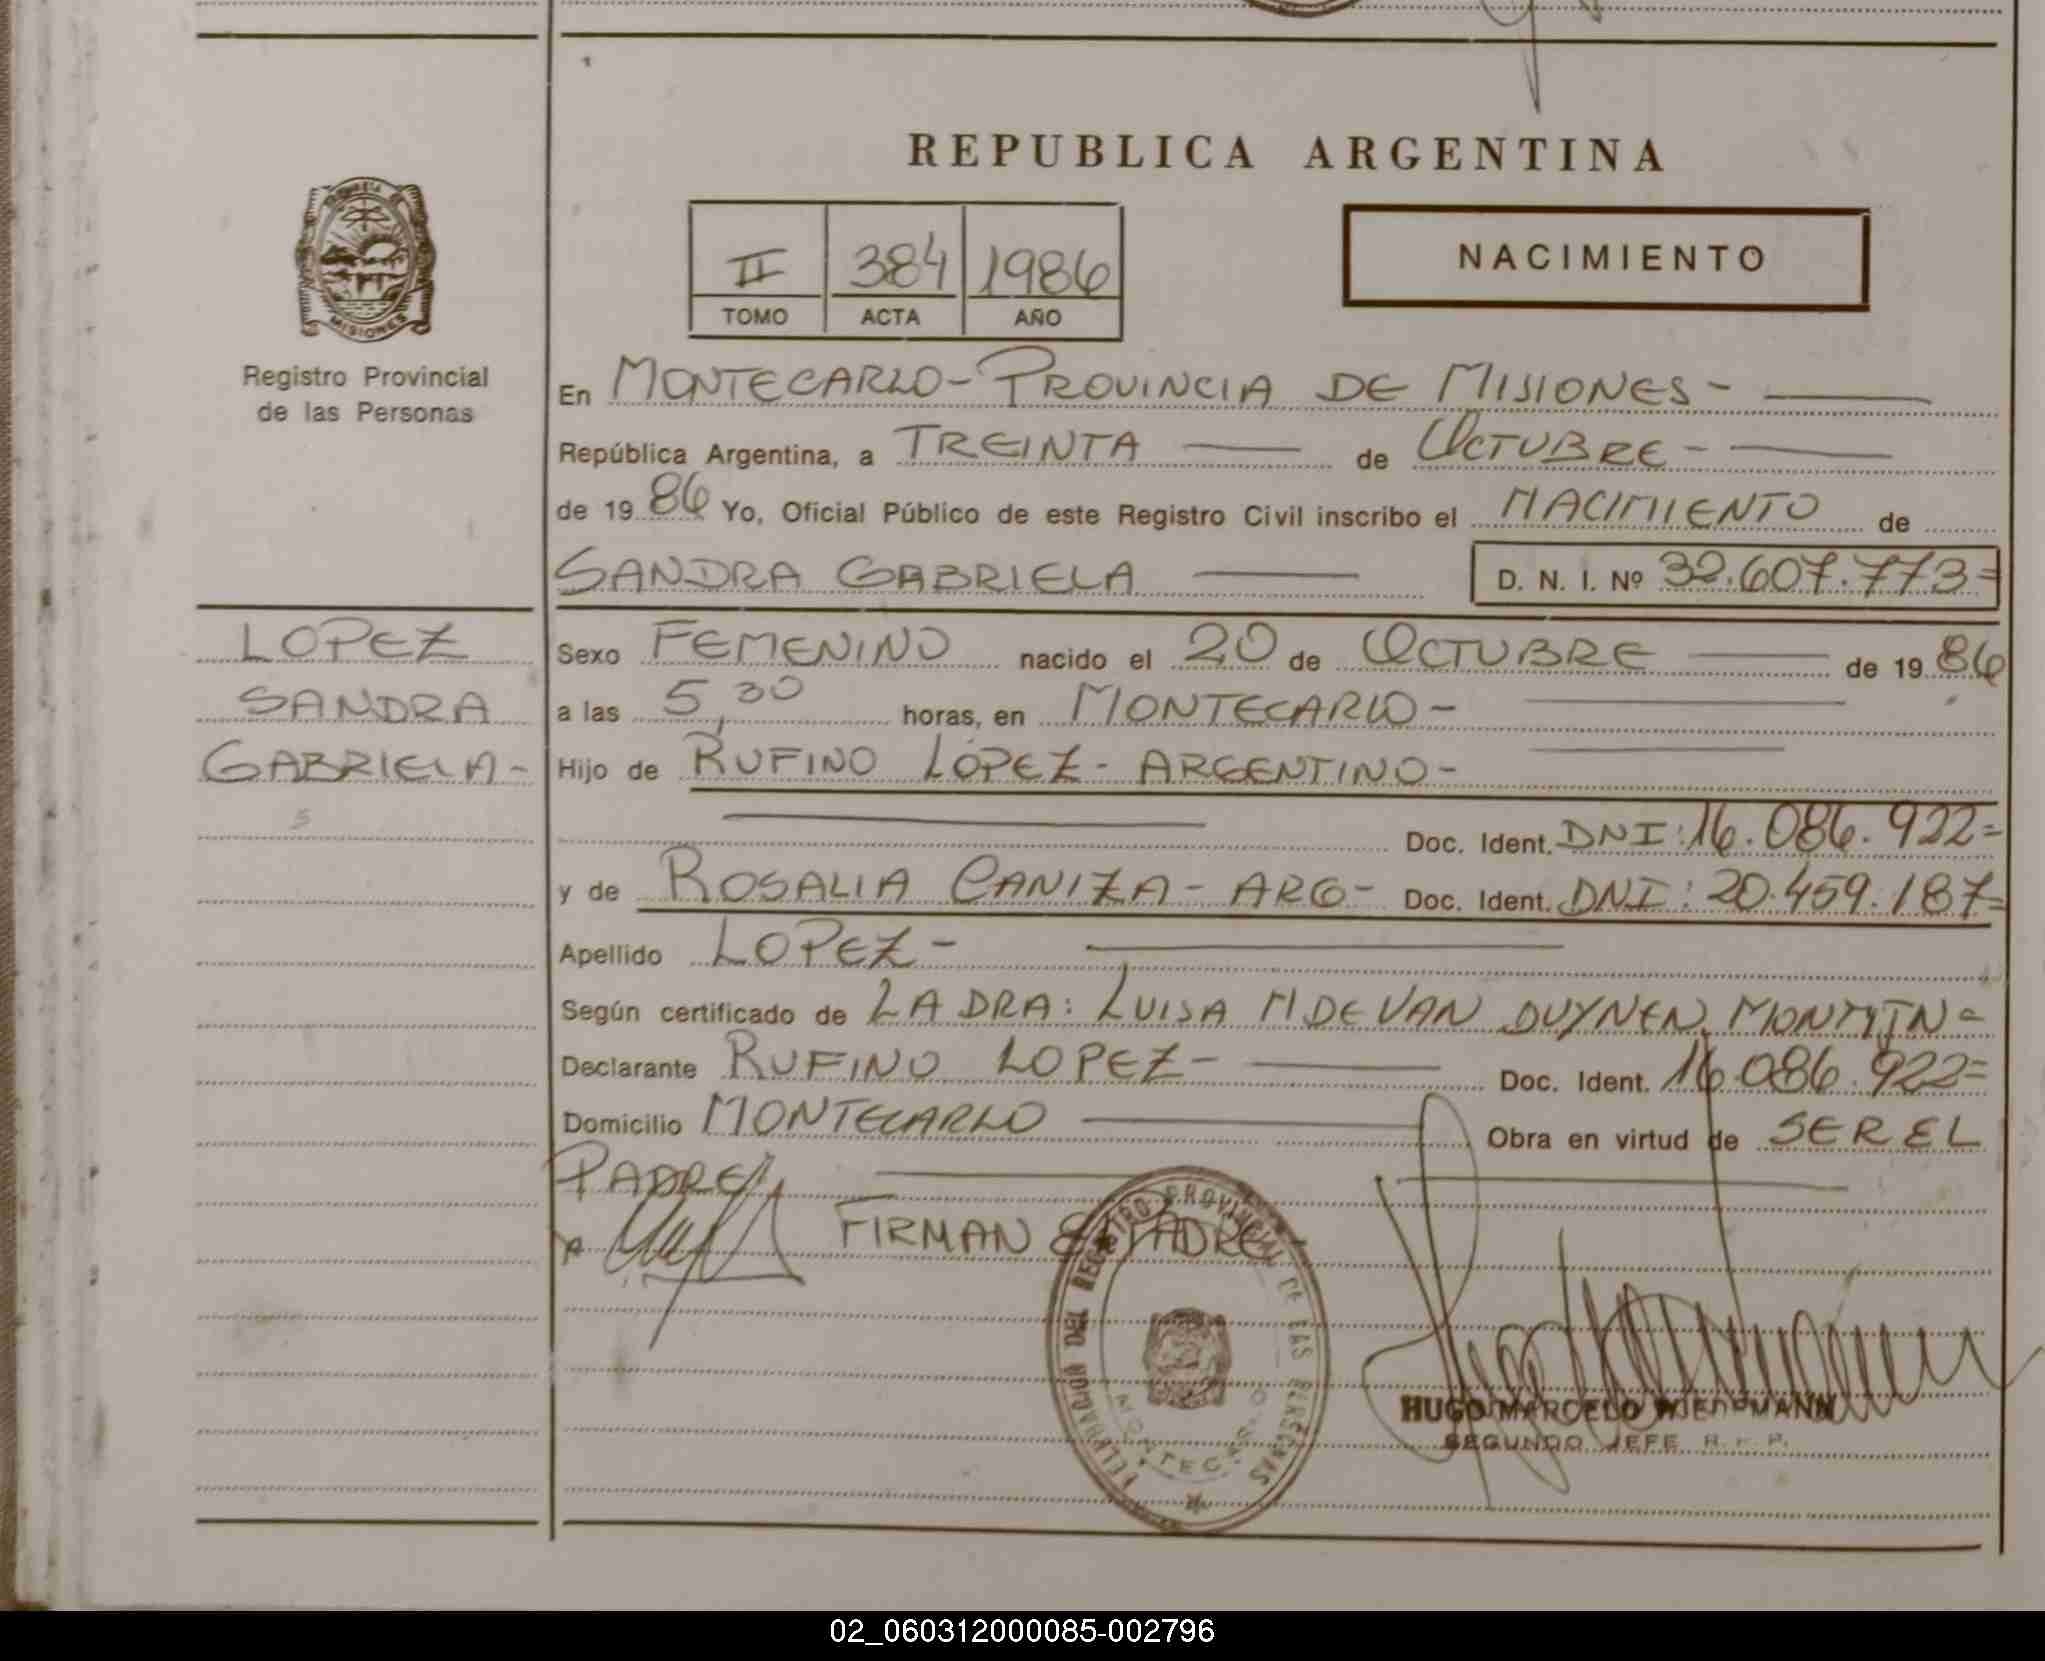 REPUBLICA ARGENTINA
II 384 1986
TOMO ACTA AÑO
NACIMIENTO
MISIONES
Registro Provincial
de las Personas
En MONTECARLO - PROVINCIA DE MISIONES -
República Argentina, a TREINTA de OCTUBRE -
de 19 86 Yo, Oficial Público de este Registro Civil inscribo el NACIMIENTO de
SANDRA GABRIELA D. N. I. Nº 32.607.773=
LOPEZ
SANDRA
GABRIELA -
Sexo FEMENINO nacido el 20 de OCTUBRE de 19 86
a las 5,30 horas, en MONTECARLO -
Hijo de RUFINO LOPEZ - ARGENTINO -
Doc. Ident. DNI: 16.086.922=
y de ROSALIA CANIZA - ARG - Doc. Ident. DNI: 20.459.187=
Apellido LOPEZ -
Según certificado de LA DRA: LUISA M DE VAN DUYNEN
Declarante RUFINO LOPEZ - Doc. Ident. 16.086.922=
Domicilio MONTECARLO Obra en virtud de SER EL
PADRE
FIRMAN EL PADRE -
DELEGACION DEL REGISTRO PROVINCIAL DE LAS PERSONAS
MONTECARLO
HUGO MARCELO WIEDEMANN
SEGUNDO JEFE R. P. P.
02_060312000085-002796